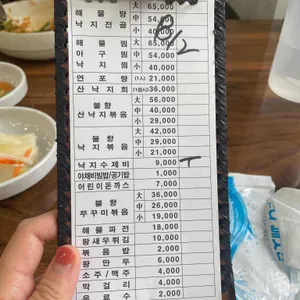 대 65,000
해물탕 중 54,000
낙지전골 소 40,000
대 65,000
해물찜 중 54,000
아구찜
낙지찜 소 40,000
연포탕 (1人) 21,000
산낙지회 36,000
불향 대 56,000
산낙지볶음 중 40,000
소 29,000
불향 대 42,000
낙지볶음 중 29,000
소 21,000
낙지수제비 9,000
야채비빔밥/공기밥 1,000
어린이돈까스 7,000
불향 대 36,000
쭈꾸미볶음 중 26,000
소 19,000
해물파전 18,000
왕새우튀김 10,000
볶음밥 2,000
왕만두 6,000
소주/맥주 4,000
막걸리 4,000
음료수 2,000